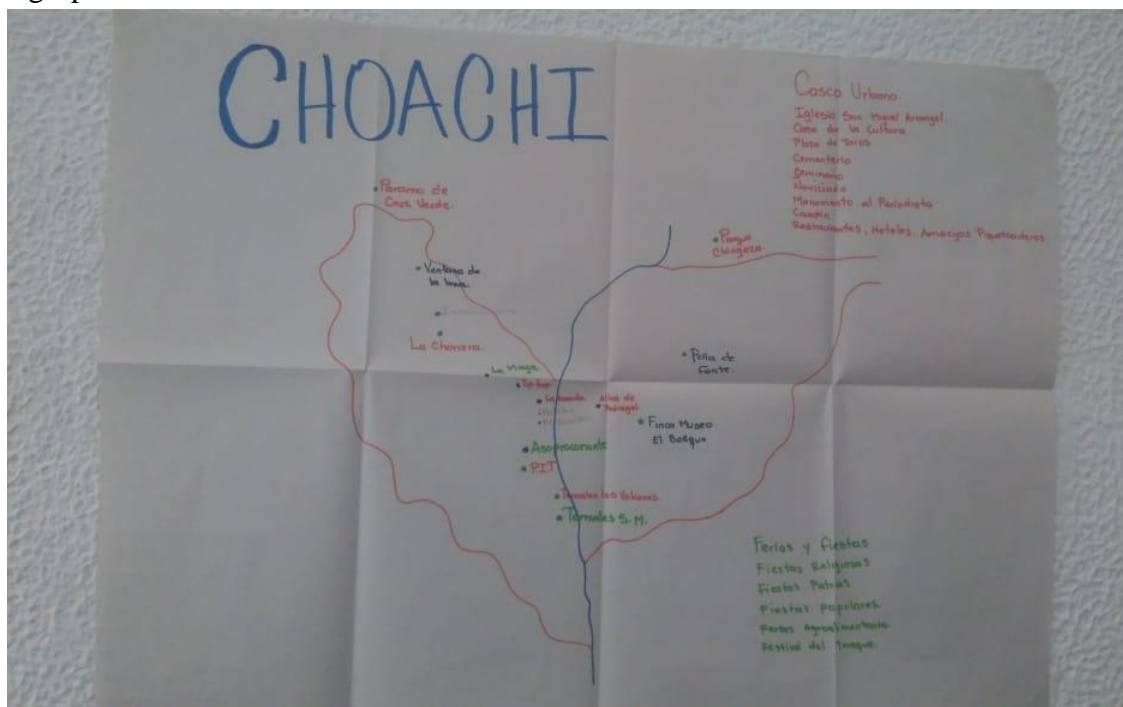 CHOACHI
Casco Urbano
Iglesia San Miguel Arcangel
Casa de la Cultura
Plaza de Toros
Cementerio
Seminario
Noviciado
Monumento al Periodista
Restaurantes, Hoteles, Amasijos Piqueteaderos
Paramo de
Cruz Verde.
Parque
Chingaza.
Ventana de
la luna.
La Chorrera.
La Maga
Peña de
Fonte.
Tip top
Altos de
Finca Museo
El Bosque
PIT
Termales los Volcanes
Termales S.M.
Ferias y Fiestas
Fiestas Religiosas
Fiestas Patrias
Fiestas Populares.
Ferias Agroalimentaria
Festival del